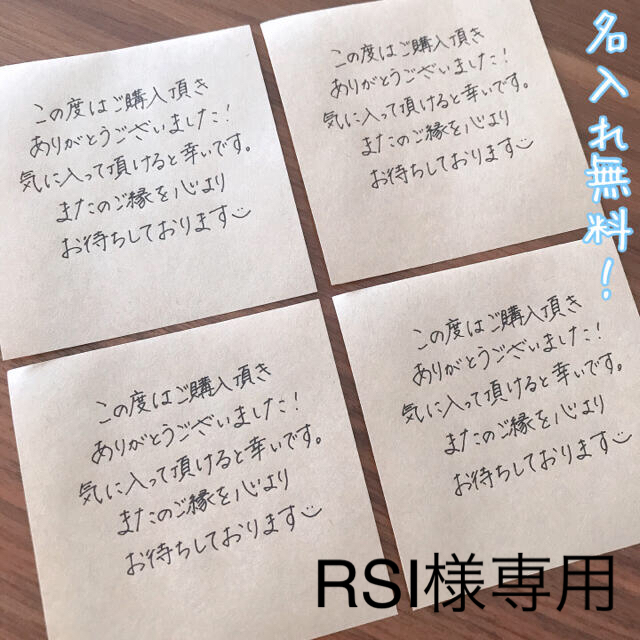 この度はご購入頂き
ありがとうございました!
気に入って頂けると幸いです。
またのご縁を心より
お待ちしております
この度はご購入頂き
ありがとうございました!
気に入って頂けると幸いです。
またのご縁を心より
お待ちしております
名入れ無料!
この度はご購入頂き
ありがとうございました!
気に入って頂けると幸いです。
またのご縁を心より
お待ちしております
この度はご購入頂き
ありがとうございました!
気に入って頂けると幸いです。
またのご縁を心より
お待ちしております
RSI様専用